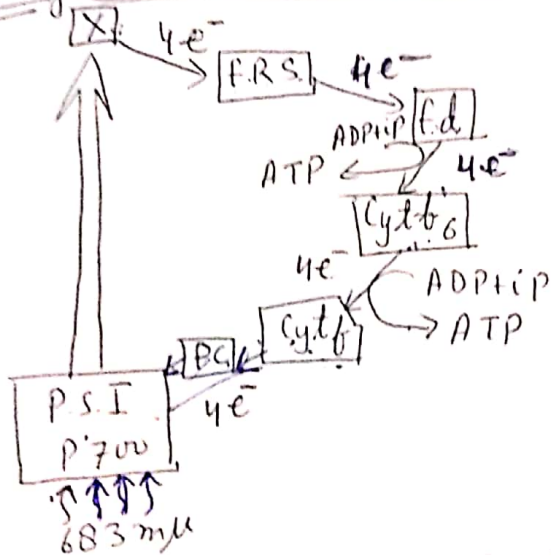 X
4e⁻
F.R.S.
4e⁻
f.d.
ADP+iP
ATP
4e⁻
Cyt.b6
4e⁻
ADP+iP
ATP
Cyt.f
P.C.
4e⁻
P.S.I
P'700
683 mµ